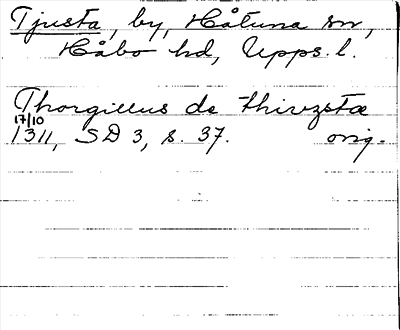 Tjusta, by, Håtuna sn,
Håbo hd, Upps. l.
Thorgillus de thivzstæ
17/10
1311, SD 3, s. 37. orig.